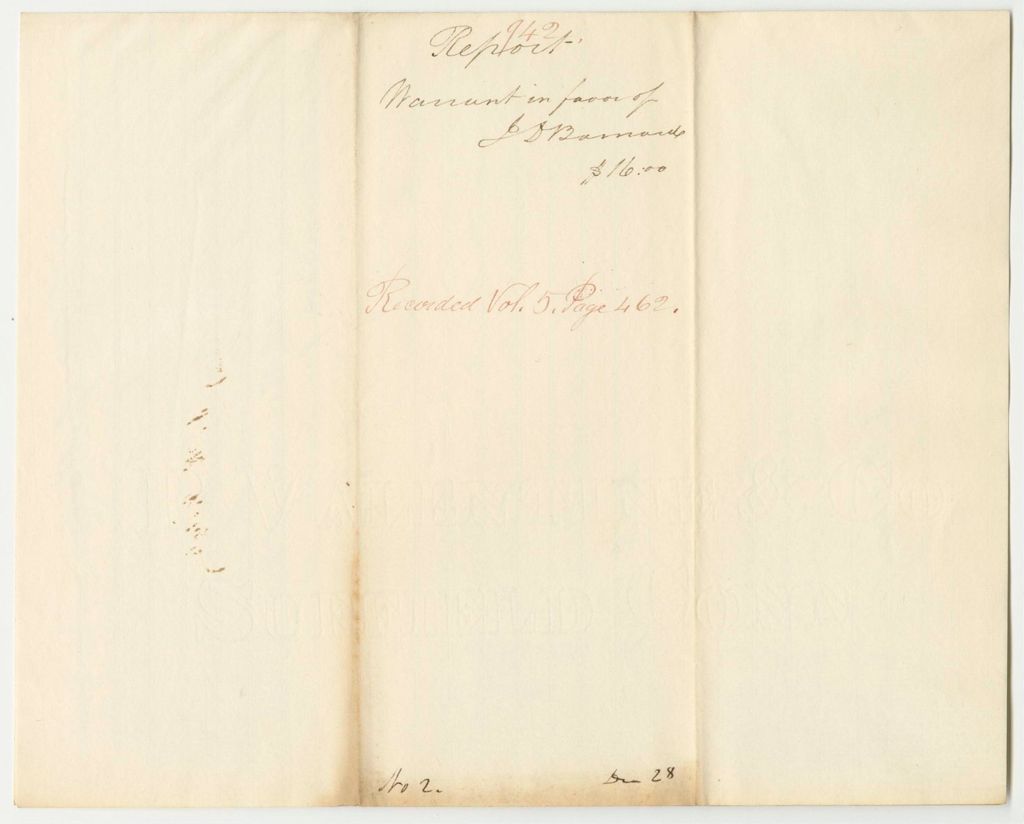 942
Report.
Warrant in favor of
J D Barnard
$16:00
Recorded Vol. 5. Page 462.
No 2.
Dec 28